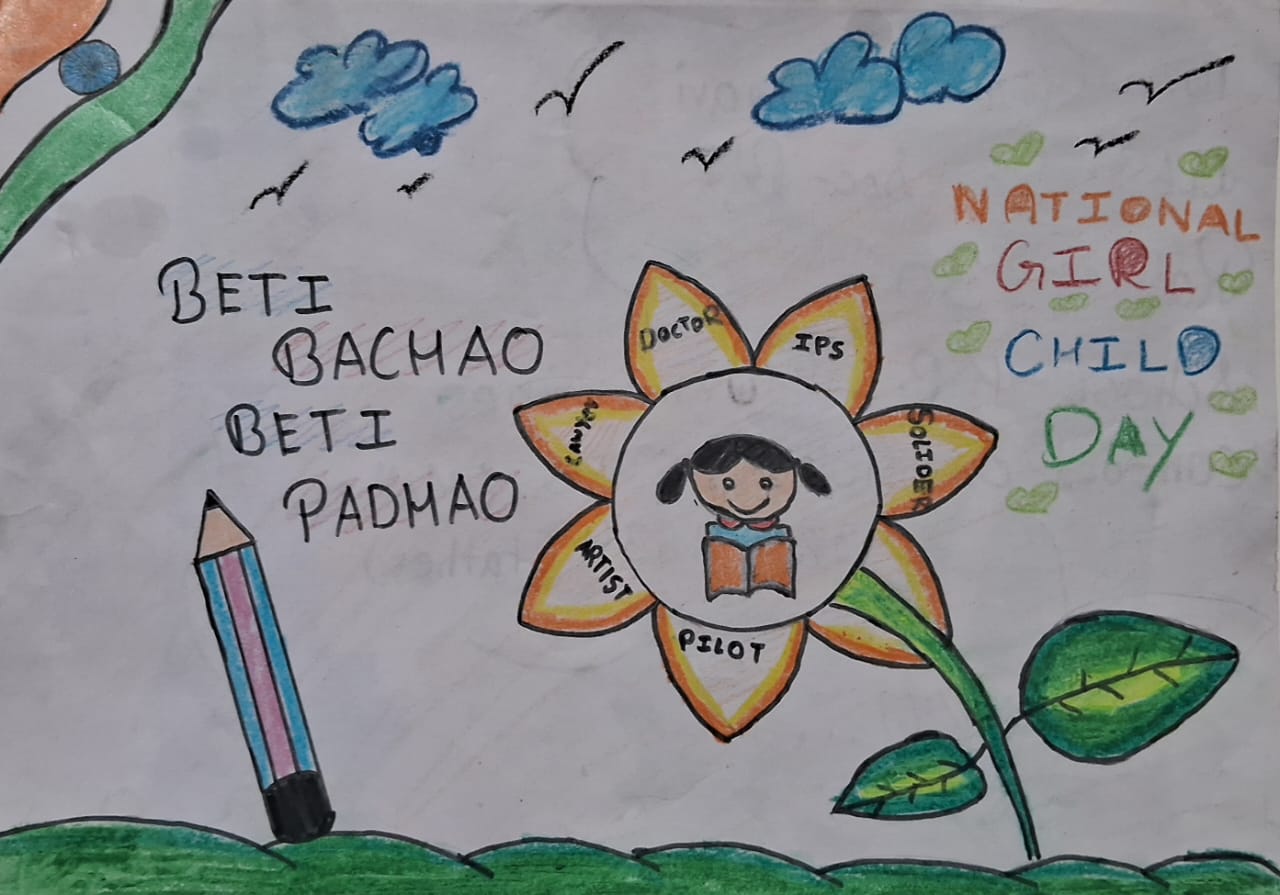 BETI
BACHAO
BETI
PADHAO
NATIONAL
GIRL
CHILD
DAY
DOCTOR
IPS
SOLIDER
PILOT
ARTIST